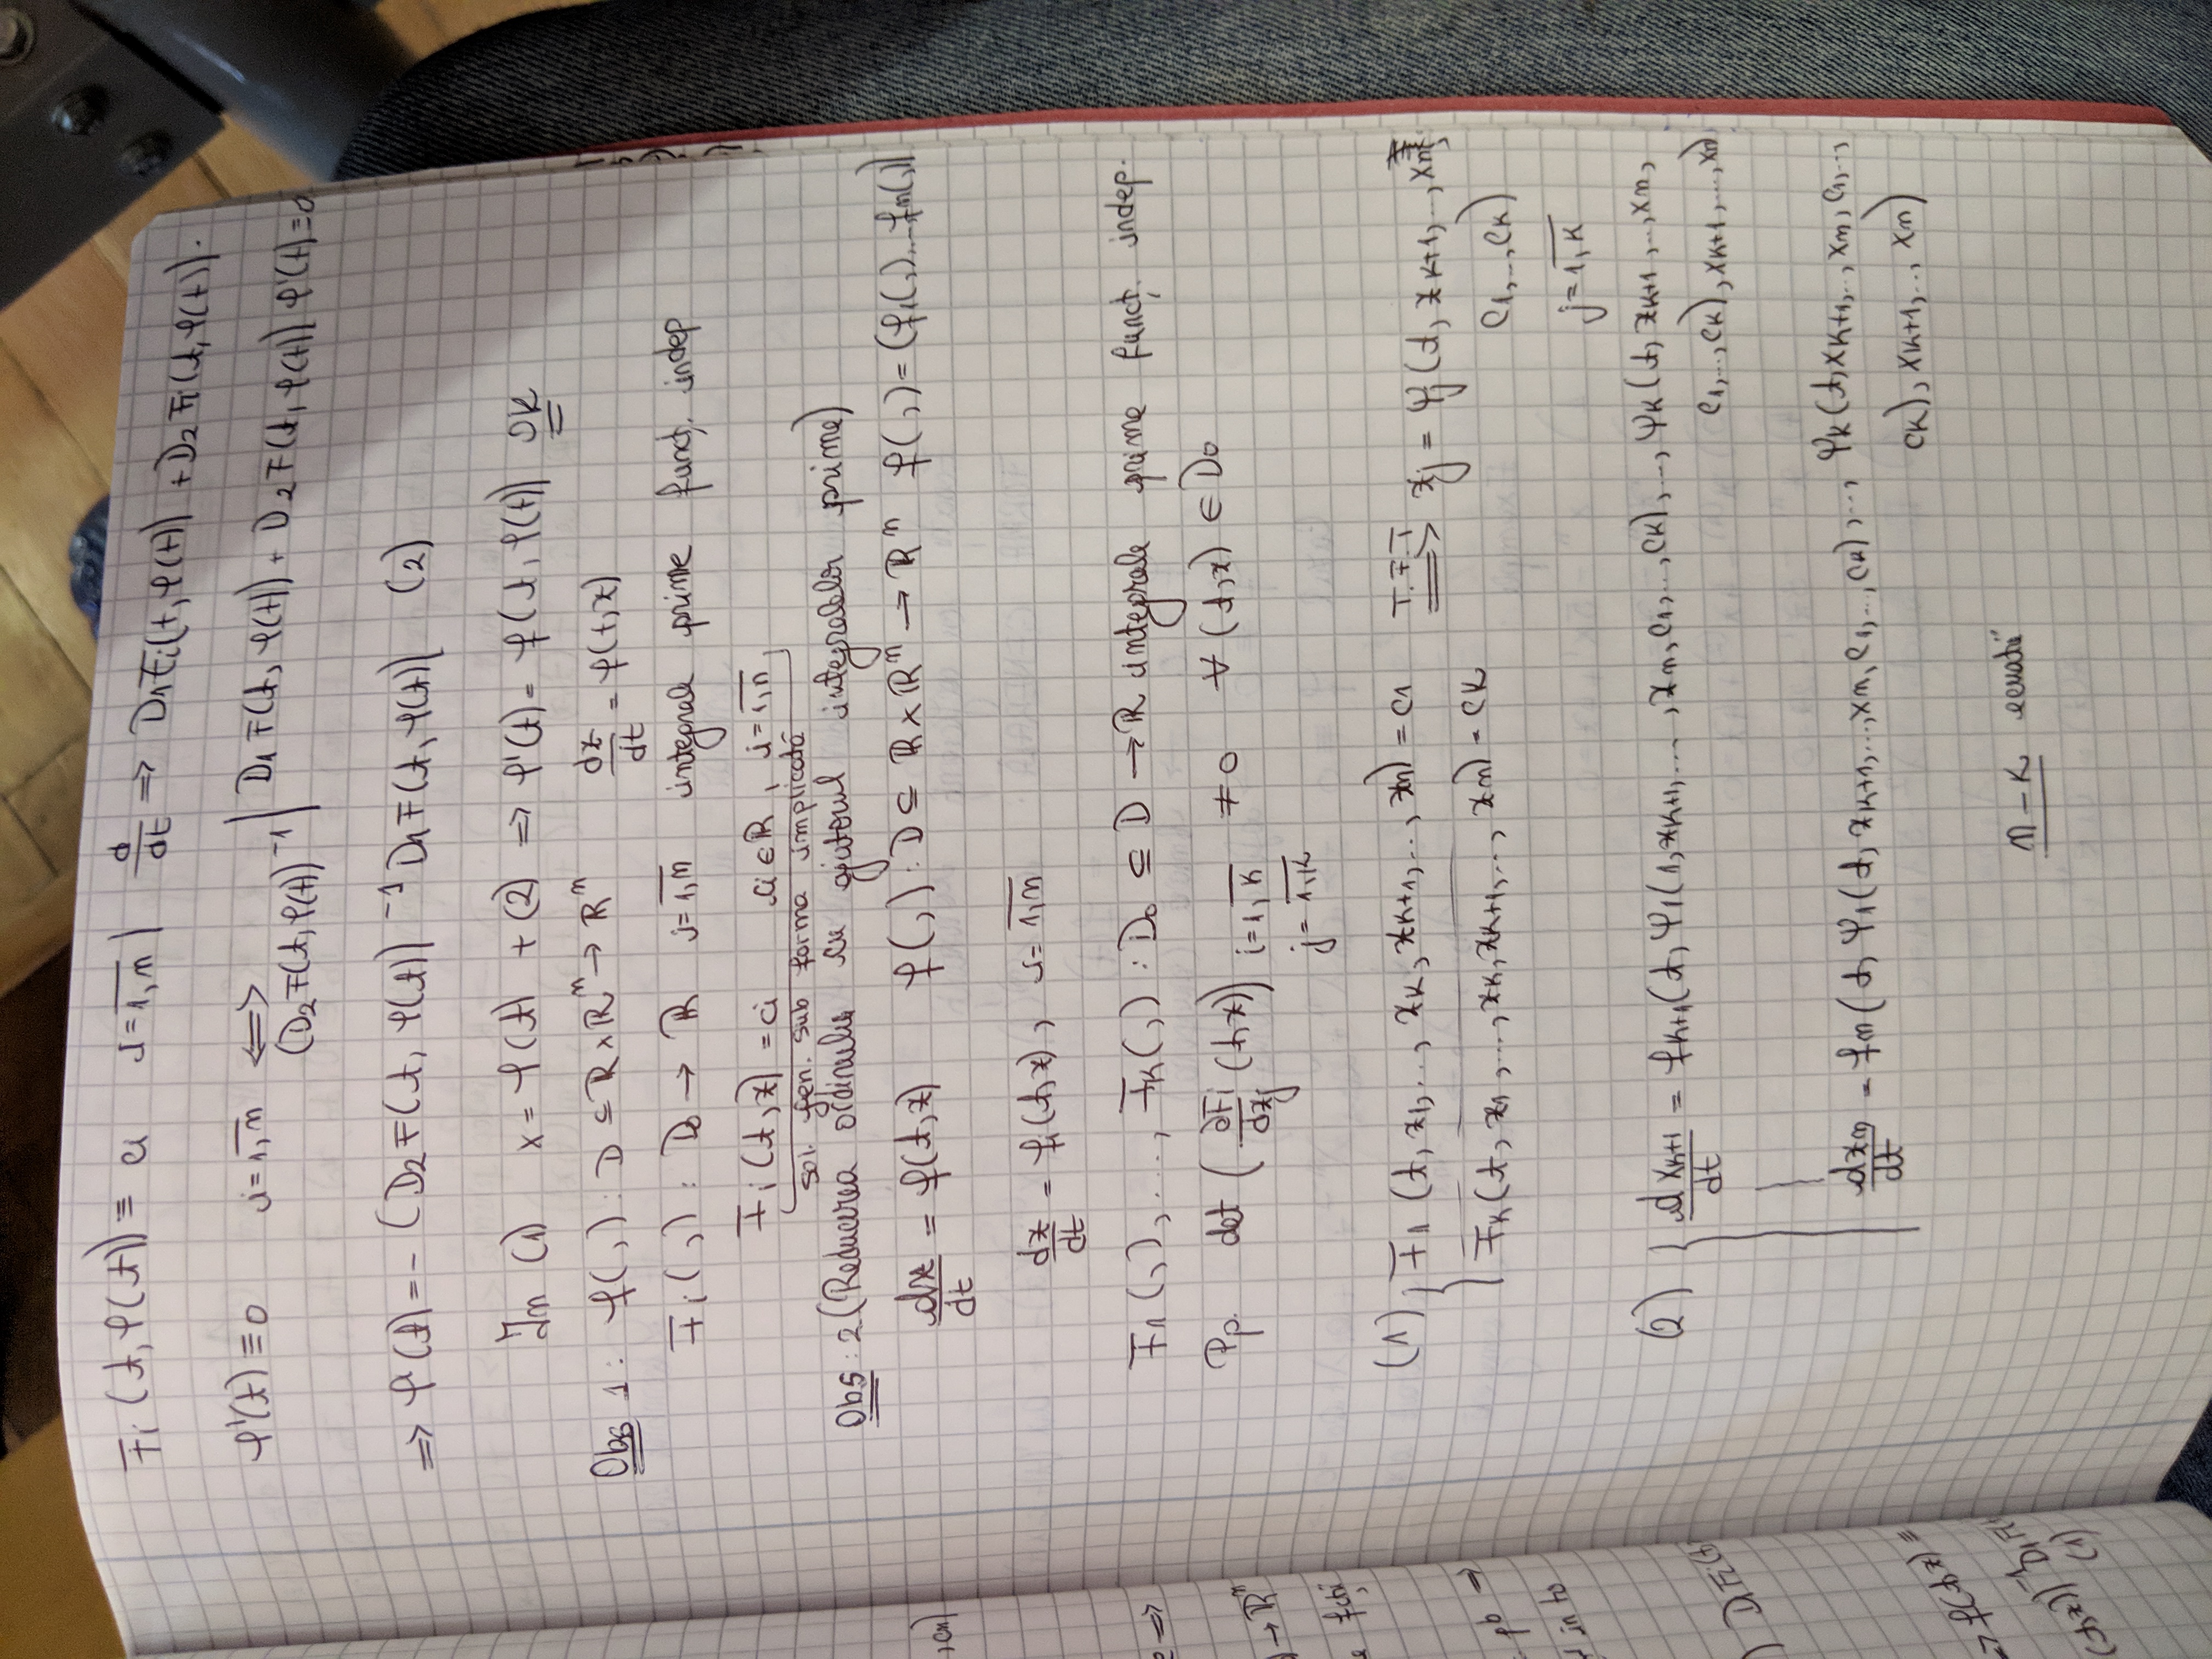 Fi(t, φ(t)) ≡ ci   i=1,n̅ |   d/dt ⇒ D1Fi(t, φ(t)) + D2Fi(t, φ(t)).
φ'(t) ≡ 0   i=1,n̅ ⟺ (D2F(t, φ(t))^-1 | D1F(t, φ(t)) + D2F(t, φ(t)) φ'(t) ≡ 0
⇒ φ'(t) = - (D2F(t, φ(t))^-1 D1F(t, φ(t))   (2)
În (1)   x = φ(t) + (2) ⇒ φ'(t) = f(t, φ(t)) OK
Obs 1: f(,) : D ⊆ ℝ×ℝ^n → ℝ^n   dx/dt = f(t,x)
Fi(,) : D0 → ℝ   i=1,n̅   integrale prime funcț. indep
Fi(t,x) = ci   ci ∈ ℝ, i=1,n̅
sol. gen. sub forma implicată
Obs: 2 (Reducerea ordinului cu ajutorul integralelor prime)
dx/dt = f(t,x)   f(,) : D ⊆ ℝ×ℝ^n → ℝ^n   f(,) = (f1(,)...fn(,))
dx/dt = fi(t,x), i=1,n̅
F1(,), ..., Fk(,) : D0 ⊆ D → ℝ integrale prime funcț. indep.
Pp. det (∂Fi/dxj (t,x)) i=1,k̅ ≠ 0   ∀ (t,x) ∈ D0
j=1,k̅
(1) { F1(t, x1, .., xk, xk+1, .., xn) = c1   T.F.I ⟹ xj = ψj(t, xk+1, .., xn,
Fk(t, x1, .., xk, xk+1, .., xn) = ck   c1, .., ck)
j=1,k̅
(2) { dxk+1/dt = fk+1(t, ψ1(1, xk+1, ..., xn, c1, .., ck), .., ψk(t, xk+1, .., xn,
c1, .., ck), xk+1, .., xn)
dxn/dt = fn(t, ψ1(t, xk+1, .., xn, c1, .., ck), .., ψk(t, xk+1, .., xn, c1, ..,
ck), xk+1, .., xn)
n - k ecuatii
, cn)
⇒
→ ℝ^n
fctii
pb ⇒
in to
) D1Fi(t,
⇒ f(t,x) ≡
(t,x))^-1 D1F(
(1)